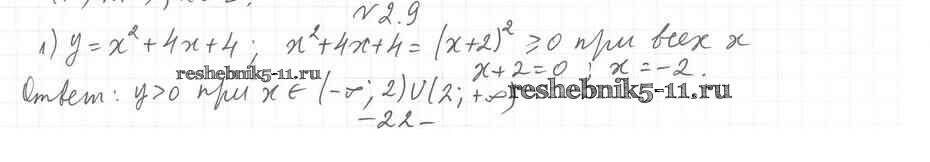 №2.9
1) y = x² + 4x + 4; x² + 4x + 4 = (x+2)² ≥ 0 при всех x
x + 2 = 0; x = -2.
reshebnik5-11.ru
Ответ: y > 0 при x ∈ (-∞; 2) ∪ (2; +∞)
reshebnik5-11.ru
-22-